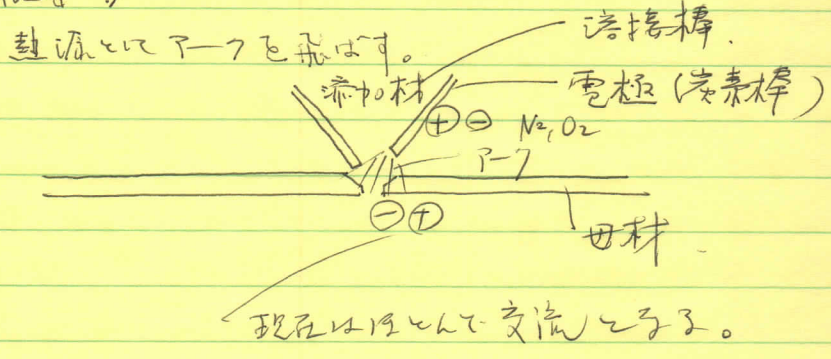 熱源としてアークを飛ばす。
溶接棒.
添加材
電極(炭素棒)
⊕ ⊖ N2, O2
アーク
⊖ ⊕
母材.
現在はほとんで交流となる。